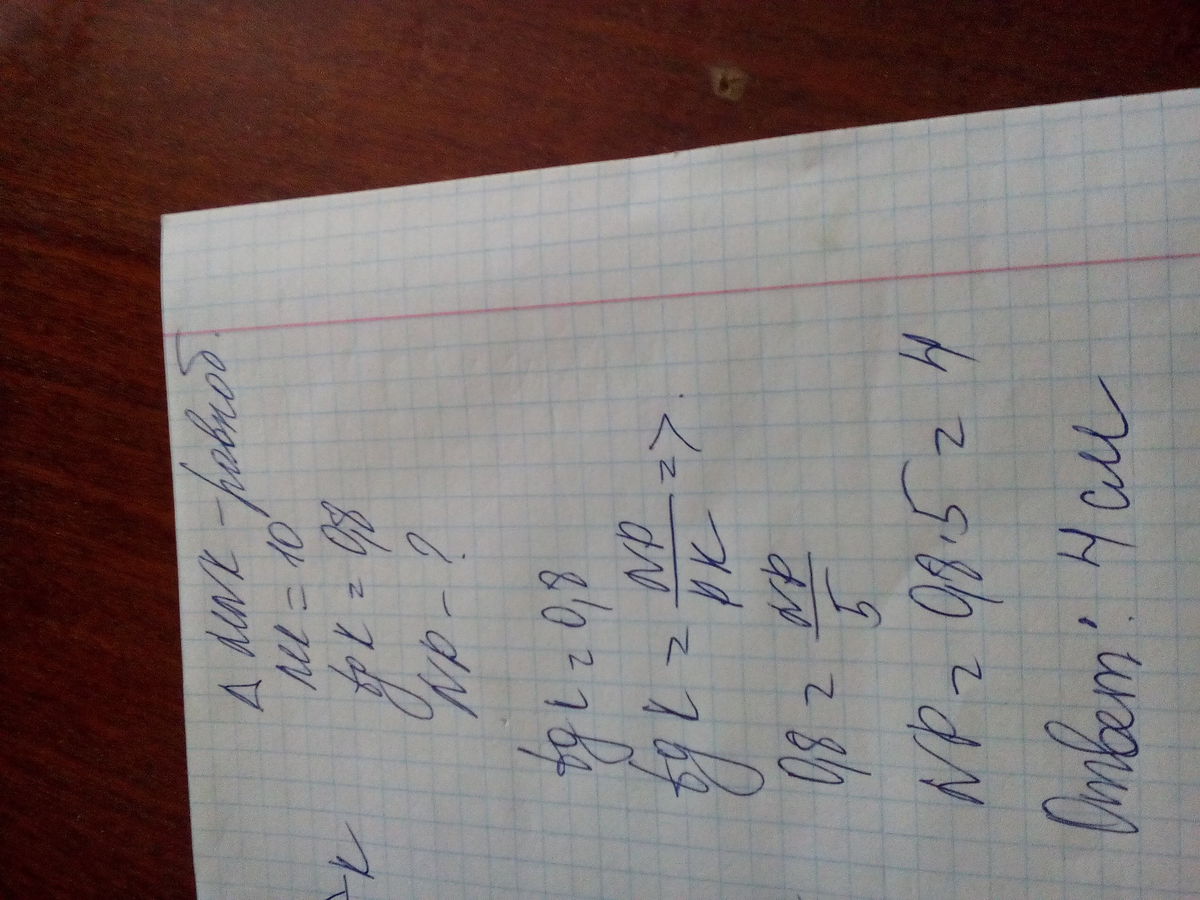 △ MNK – равноб.
MK = 10
tg K = 0,8
NP – ?
K
tg K = 0,8
tg K = NP/PK =>
0,8 = NP/5
NP = 0,8·5 = 4
Ответ: 4 см